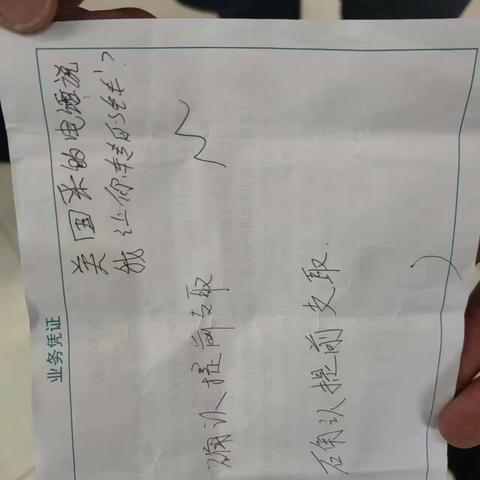 业务凭证
美国来的电话说
我让你转的?
确认提前支取
确认提前支取.